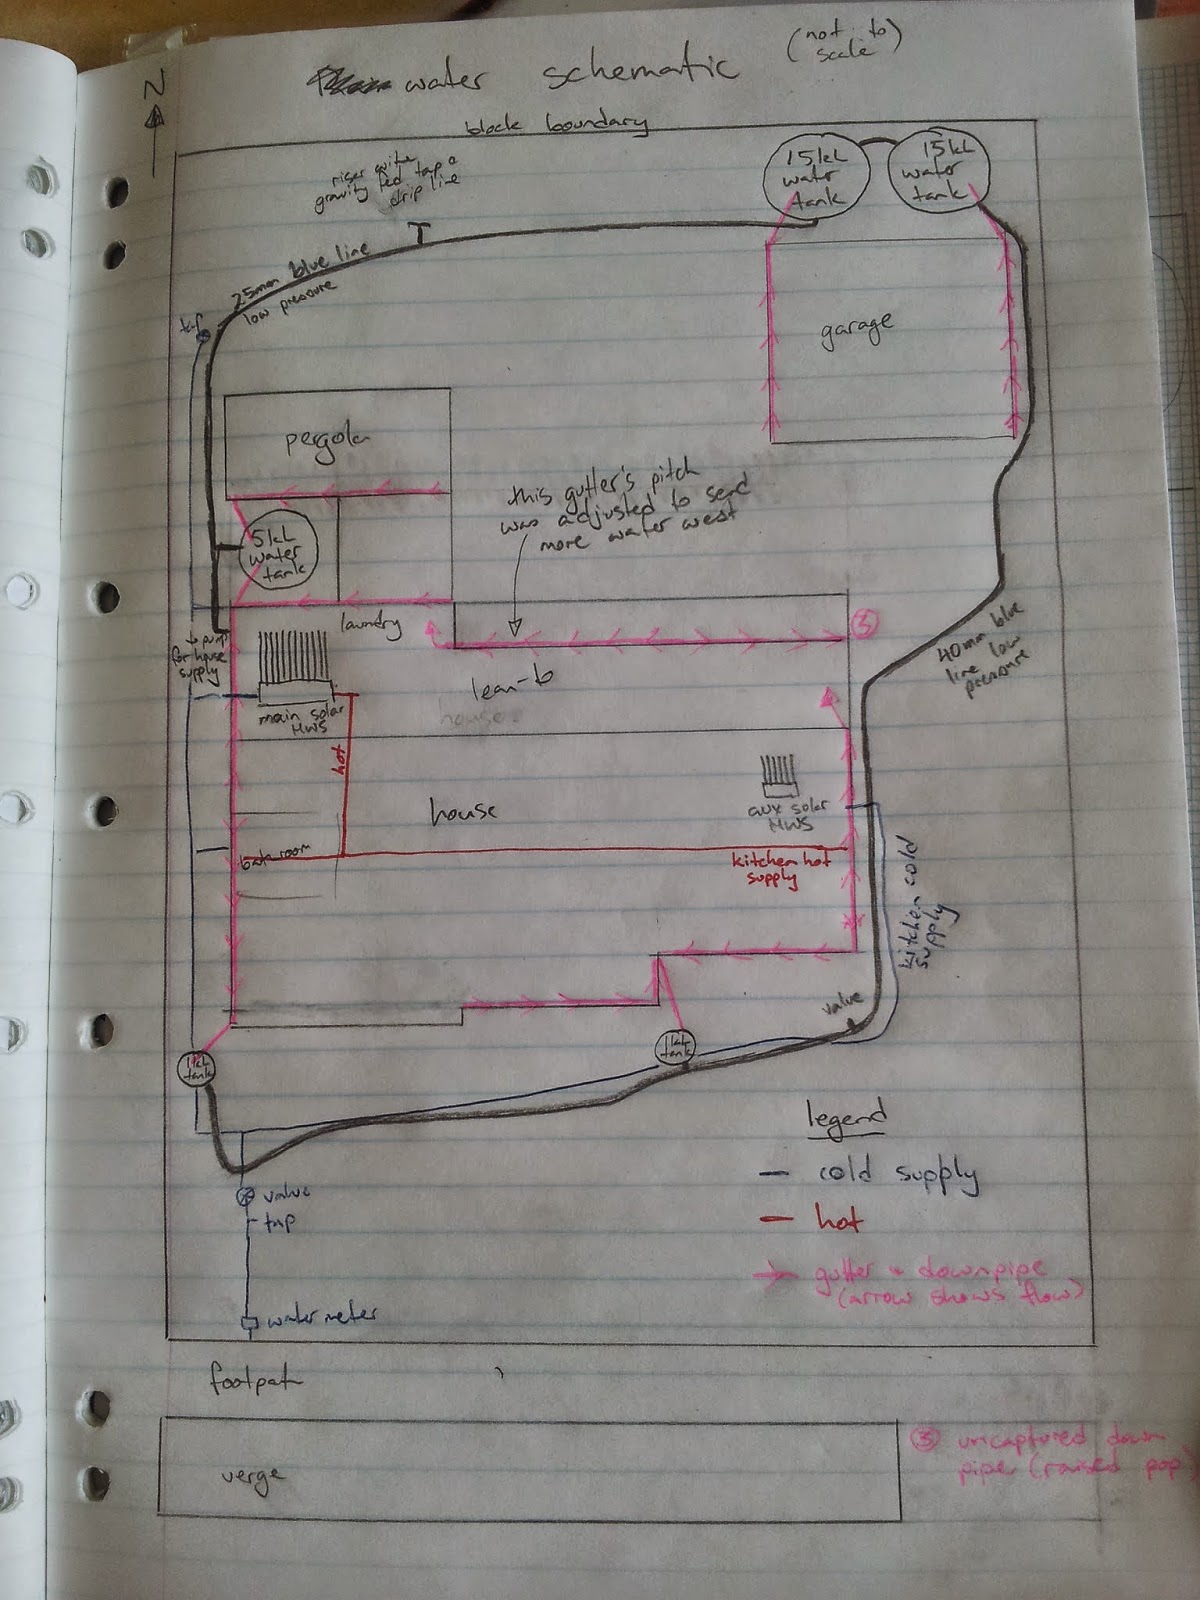 water schematic
(not to
scale)
N
block boundary
riser with
gravity fed tap &
drip line
15kL
water
tank
15kL
water
tank
25mm blue line
low pressure
tap
garage
pergola
this gutter's pitch
was adjusted to send
more water west
5kL
water
tank
laundry
3
pump
for house
supply
40mm blue
line low
pressure
lean-to
house
main solar
HWS
hot
house
aux solar
HWS
bathroom
kitchen hot
supply
kitchen cold
supply
valve
1kL
tank
1kL
tank
legend
cold supply
hot
gutter & downpipe
(arrow shows flow)
valve
tap
water meter
footpath
verge
3 uncaptured down
pipes (raised pop